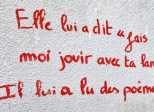 Elle lui a dit "fais
moi jouir avec ta lan
Il lui a lu des poème